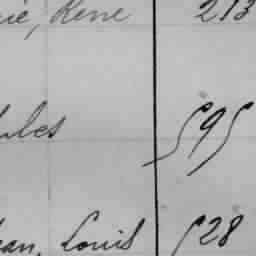 ie, René 213
ules 595
ean, Louis 528